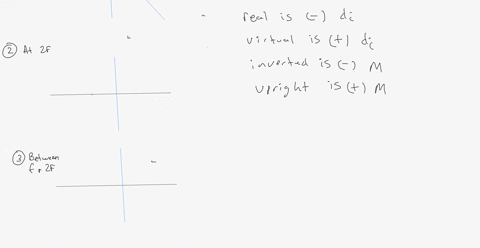 real is (-) di
virtual is (+) di
inverted is (-) M
upright is (+) M
② At 2F
③ Between
f + 2F